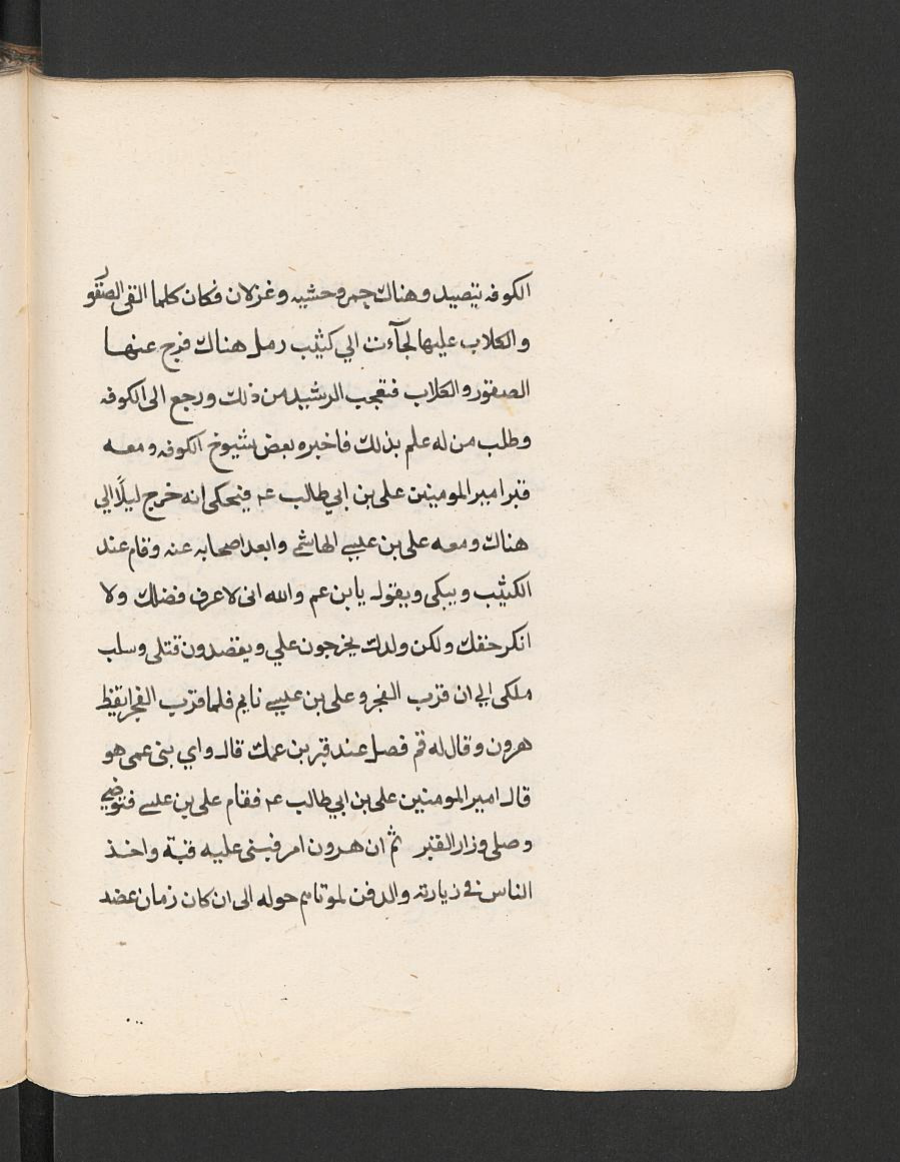 الكوفه يتصيد وهناك حمر وحشيه وغزلان فكان كلما القى الصقور
والكلاب عليها لجآءت الي كثيب رمل هناك فرجع عنها
الصقور والكلاب فتعجب الرشيد من ذلك ورجع الى الكوفه
وطلب من له علم بذلك فاخبره بعض شيوخ الكوفه ومعه
قبر امير المومنين على بن ابي طالب عم فيحكى انه خرج ليلًا الي
هناك ومعه على بن عيسي الهاشمي وابعد اصحابه عنه وقام عند
الكثيب ويبكى ويقول يابن عم والله انى لاعرف فضلك ولا
انكر حقك ولكن ولدك يخرجون علي ويقصدون قتلى وسلب
ملكى الي ان قرب الفجر وعلى بن عيسي نايم فلما قرب الفجر ايقظ
هرون وقال له قم فصل عند قبر بن عمك قال واي بنى عمى هو
قال امير المومنين على بن ابي طالب عم فقام على بن عيسى فتوضى
وصلى وزار القبر ثم ان هرون امر فبنى عليه قبة واخذ
الناس في زيارته والدفن لموتاهم حوله الى ان كان زمان عضد